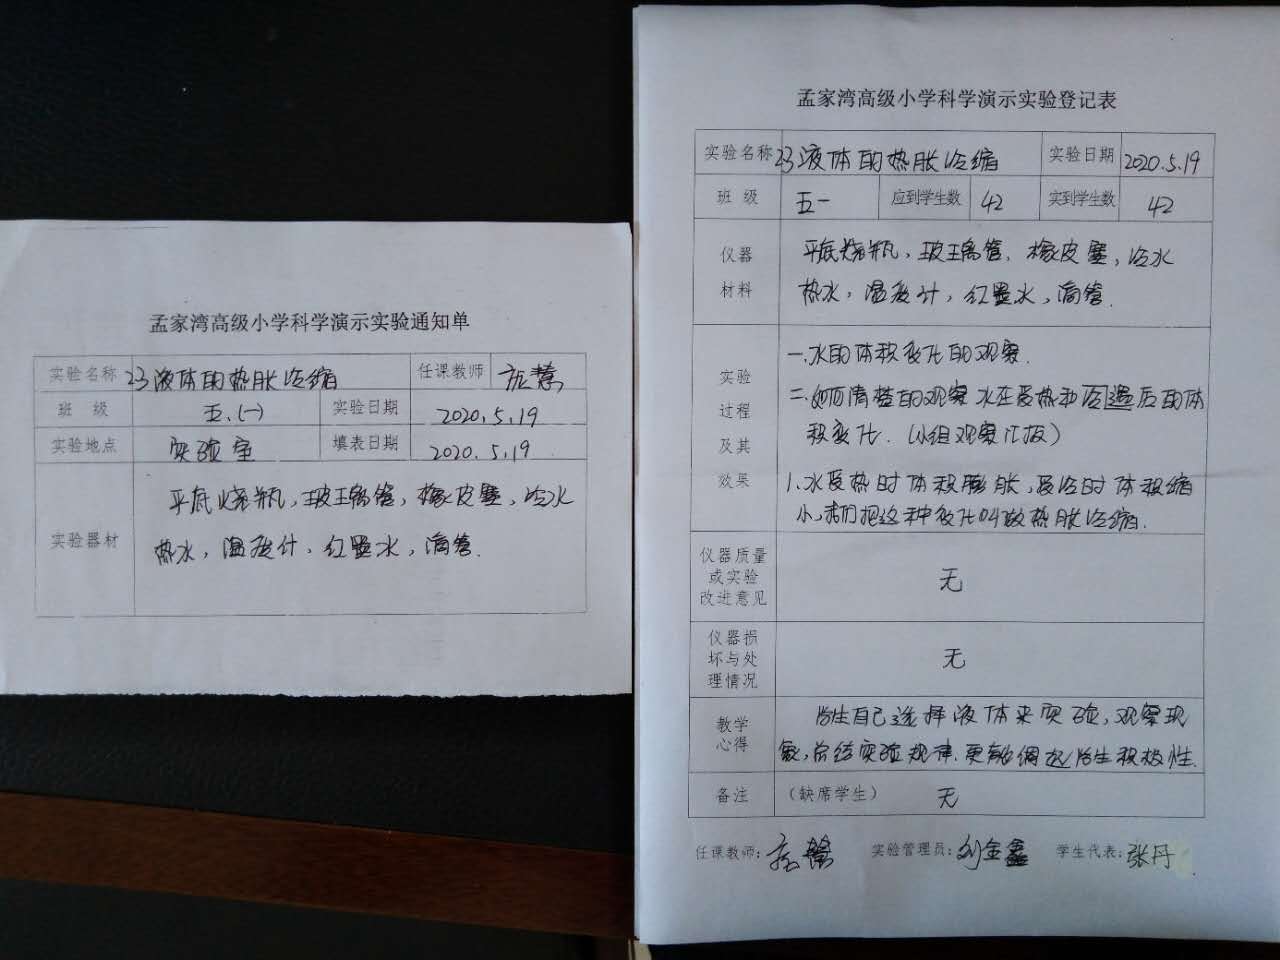 孟家湾高级小学科学演示实验通知单
实验名称 23液体的热胀冷缩 任课教师
班级 五.(一) 实验日期 2020.5.19
实验地点 实验室 填表日期 2020.5.19
实验器材
平底烧瓶,玻璃管,橡皮塞,冷水
热水,温度计,红墨水,滴管.
孟家湾高级小学科学演示实验登记表
实验名称 23液体的热胀冷缩 实验日期 2020.5.19
班级 五一 应到学生数 42 实到学生数 42
仪器
材料
平底烧瓶,玻璃管.橡皮塞,冷水
热水,温度计,红墨水,滴管.
实验
过程
及其
效果
一.水的体积变化的观察.
二.如何清楚的观察水在受热和遇冷后的体
积变化.(小组观察汇报)
1.水受热时体积膨胀,受冷时体积缩
小,我们把这种变化叫做热胀冷缩.
仪器质量
或实验
改进意见
无
仪器损
坏与处
理情况
无
教学
心得
学生自己选择液体来实验,观察现
象,总结实验规律.更能调起学生积极性.
备注 (缺席学生) 无
任课教师: 实验管理员:刘金鑫 学生代表:张丹